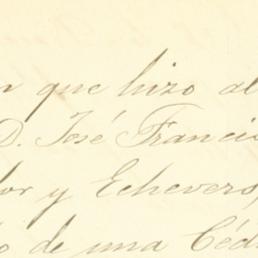 n que hizo al
D. José Francis
lor y Echevers,
o de una Céd